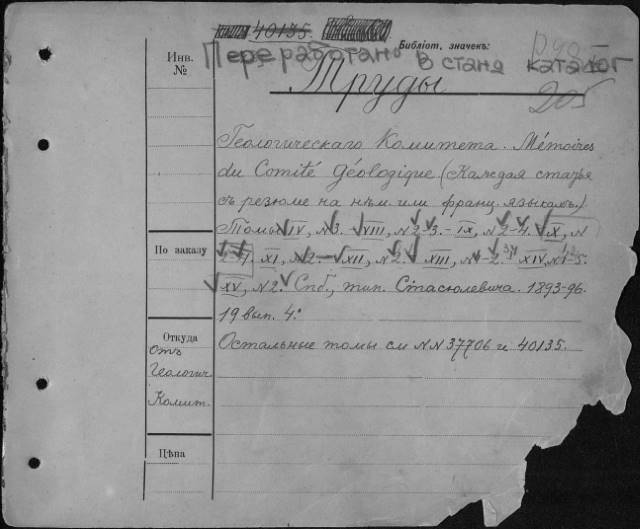 40135.
Библіот. значекъ:
Инв. №
Переработано в стана каталог
Труды
205
Геологическаго Комитета. Mémoires
du Comité Géologique (Каждая статья
съ резюме на нѣм или франц. языкахъ)
Томы IV, №3. - VIII, №2, 3. - IX, №2-4. X, №
XI, №2 - XII, №2 XIII, № -2. XIV, №1-5.
По заказу
XV, №2. Спб., тип. Стасюлевича. 1893-96.
19 вып. 4:
Откуда
Остальные томы см NN 37706 и 40135.
отъ
Геологич
Комит.
Цѣна